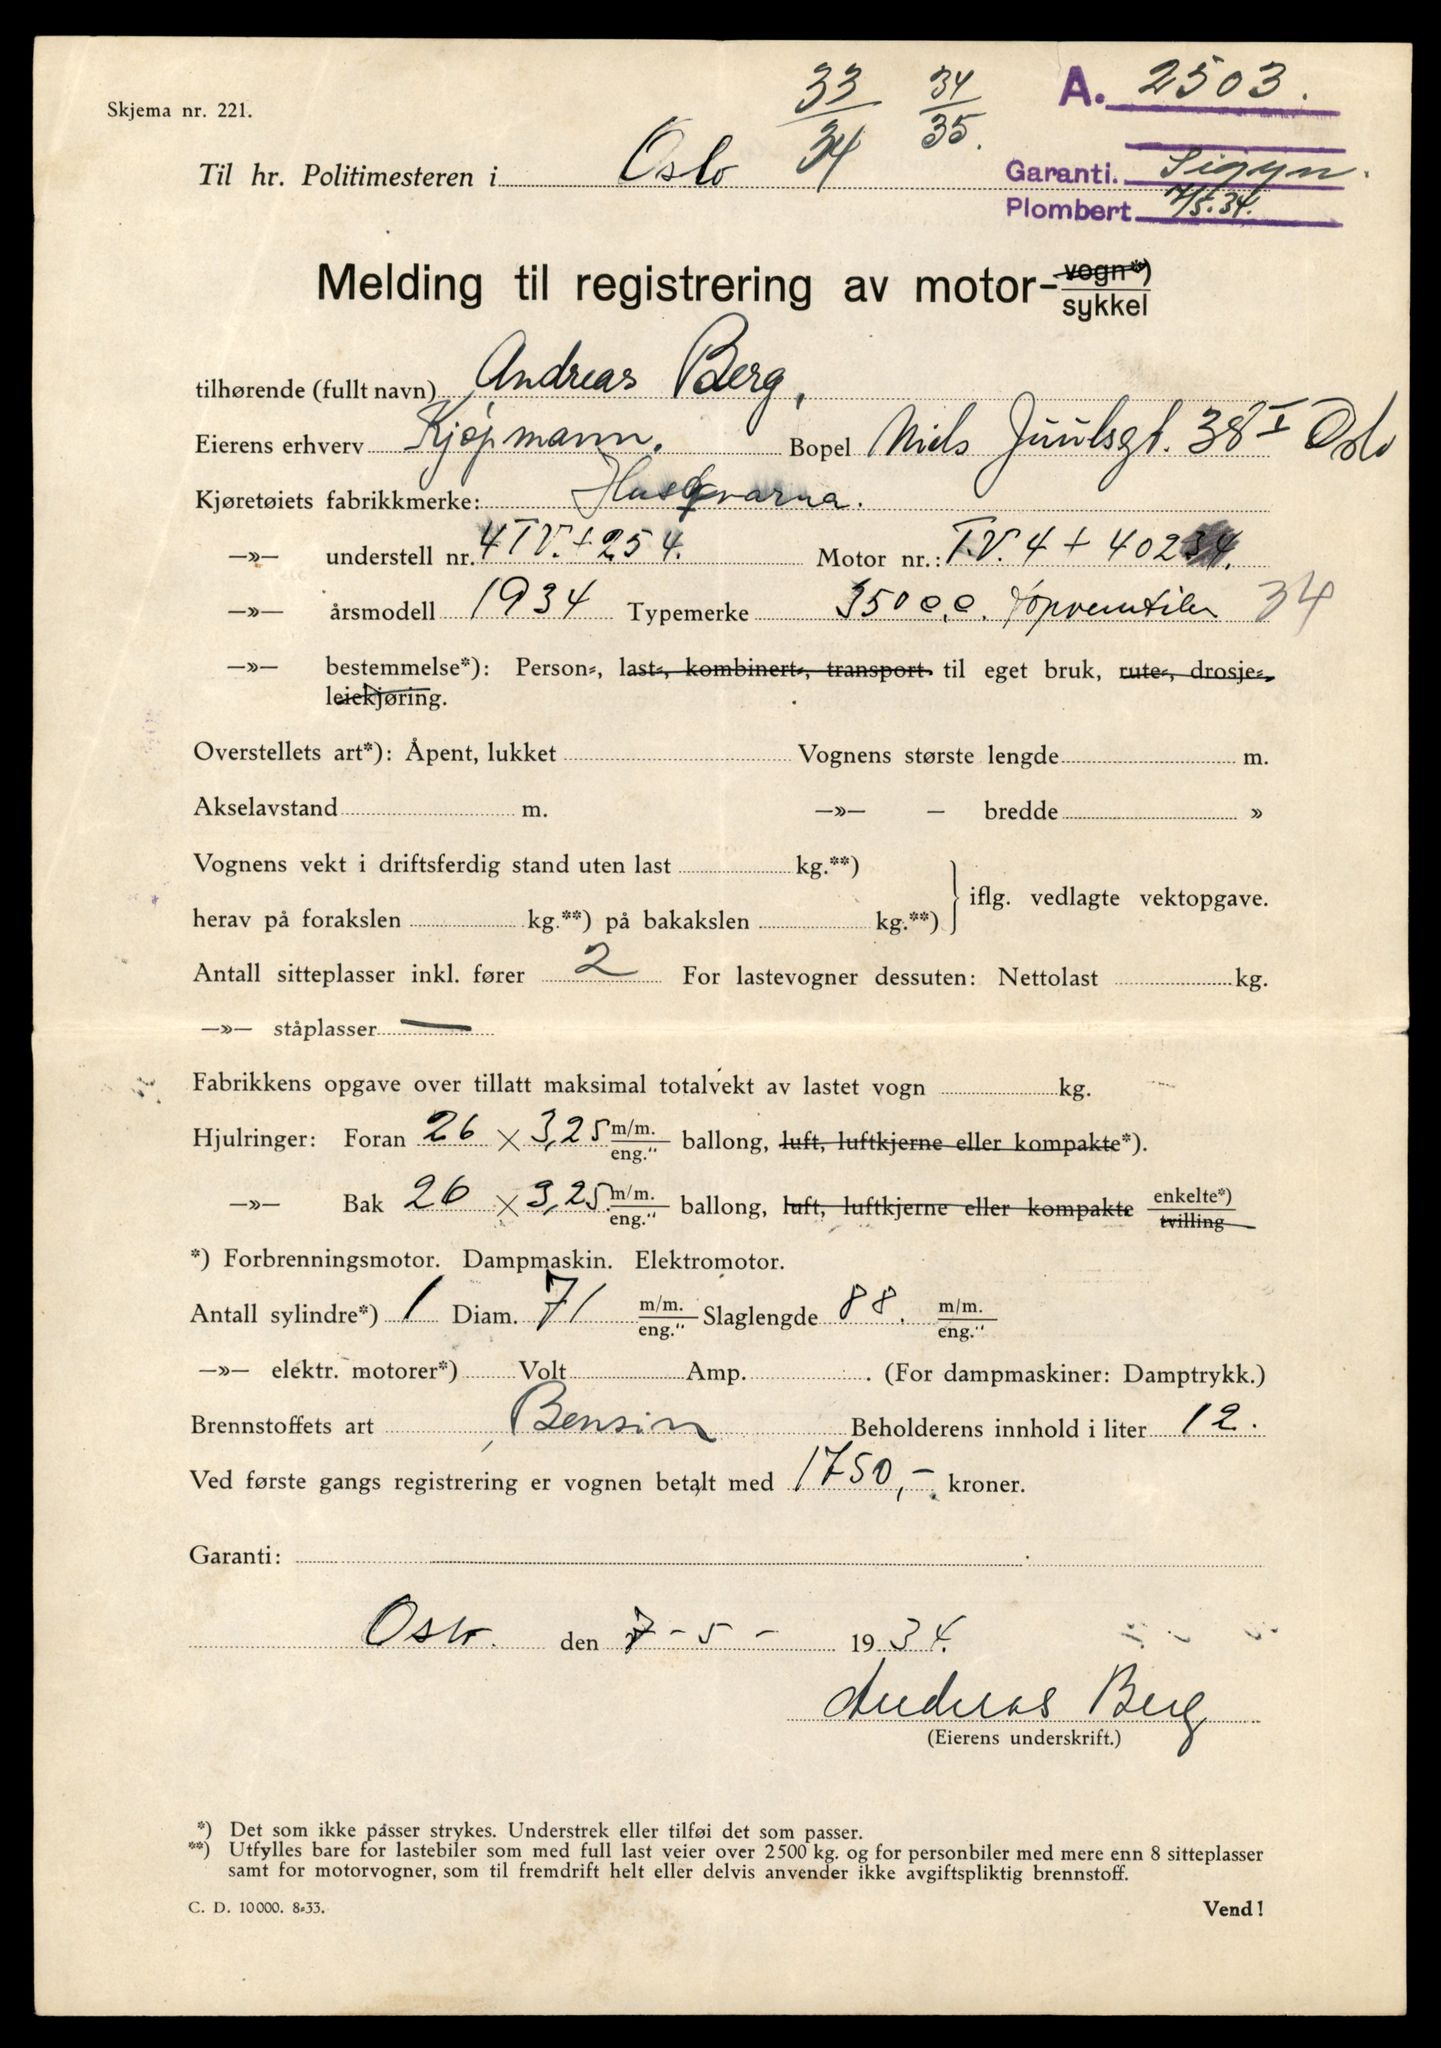 33 34 A. 2503.
Skjema nr. 221.
34 35.
Til hr. Politimesteren i Oslo
Garanti. Sigyn.
Plombert 7/5.34.
Melding til registrering av motor- vogn*) sykkel
tilhørende (fullt navn) Andreas Berg,
Eierens erhverv Kjøpmann. Bopel Niels Juulsgt. 38 I Oslo
Kjøretøiets fabrikkmerke: Husqvarna.
—»— understell nr. 4TV.+254. Motor nr.: T.V. 4 + 40234.
—»— årsmodell 1934 Typemerke 350 c.c. topventiler 34
—»— bestemmelse*): Person-, last-, kombinert-, transport- til eget bruk, rute-, drosje-,
leiekjøring.
Overstellets art*): Åpent, lukket Vognens største lengde m.
Akselavstand m. —»— — bredde »
Vognens vekt i driftsferdig stand uten last kg.**)
iflg. vedlagte vektopgave.
herav på forakslen kg.**) på bakakslen kg.**)
Antall sitteplasser inkl. fører 2 For lastevogner dessuten: Nettolast kg.
—»— ståplasser —
Fabrikkens opgave over tillatt maksimal totalvekt av lastet vogn kg.
Hjulringer: Foran 26 × 3,25 m/m. eng." ballong, luft, luftkjerne eller kompakte*).
—»— Bak 26 × 3,25 m/m. eng." ballong, luft, luftkjerne eller kompakte enkelte*) tvilling
*) Forbrenningsmotor. Dampmaskin. Elektromotor.
Antall sylindre*) 1 Diam. 71 m/m. eng." Slaglengde 88. m/m. eng."
—»— elektr. motorer*) Volt Amp. . (For dampmaskiner: Damptrykk.)
Brennstoffets art Bensin Beholderens innhold i liter 12.
Ved første gangs registrering er vognen betalt med 1750,- kroner.
Garanti:
Oslo. den 7 - 5 - 1934.
Andreas Berg
(Eierens underskrift.)
*) Det som ikke passer strykes. Understrek eller tilføi det som passer.
**) Utfylles bare for lastebiler som med full last veier over 2500 kg. og for personbiler med mere enn 8 sitteplasser
samt for motorvogner, som til fremdrift helt eller delvis anvender ikke avgiftspliktig brennstoff.
C. D. 10000. 8-33. Vend!